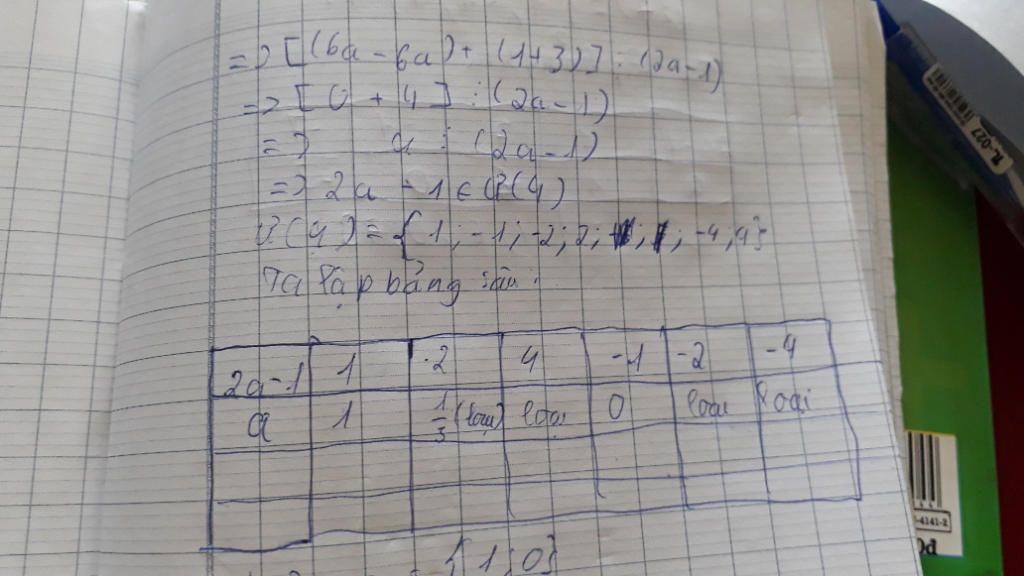 => [(6a - 6a) + (1+3)] ⋮ (2a-1)
=> [0 + 4] ⋮ (2a-1)
=> 4 ⋮ (2a-1)
=> 2a - 1 ∈ Ư(4)
Ư(4) = {1; -1; -2; 2; -4, 4}
Ta lập bảng sau:
2a-1 1 2 4 -1 -2 -4
a 1 1/3 (loại) loại 0 loại loại
{1; 0}
R-027
-4141-2